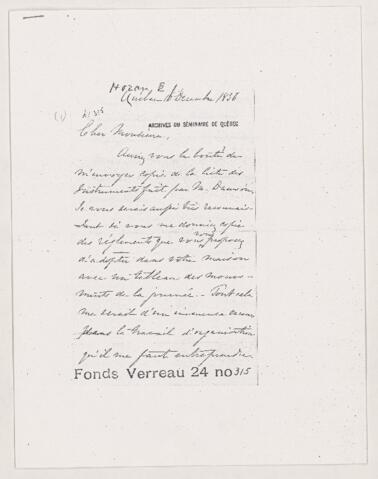 Horan, E
Québec 10 Decembre 1856
(1)
n° 315
ARCHIVES DU SÉMINAIRE DE QUÉBEC
Cher Monsieur,
Auriez vous la bonté de
m'envoyer copie de la liste des
Instruments fait par M. Dawson
Je vous serais aussi très reconnais-
sant si vous me donniez copie
des règlements que vous vous proposez
d'adopter dans votre maison
avec un tableau des mouve-
ments de la journée. - Tout cela
me serait d'un immense secours
dans le travail d'organisation
qu'il me faut entreprendre.
Fonds Verreau 24 no 315